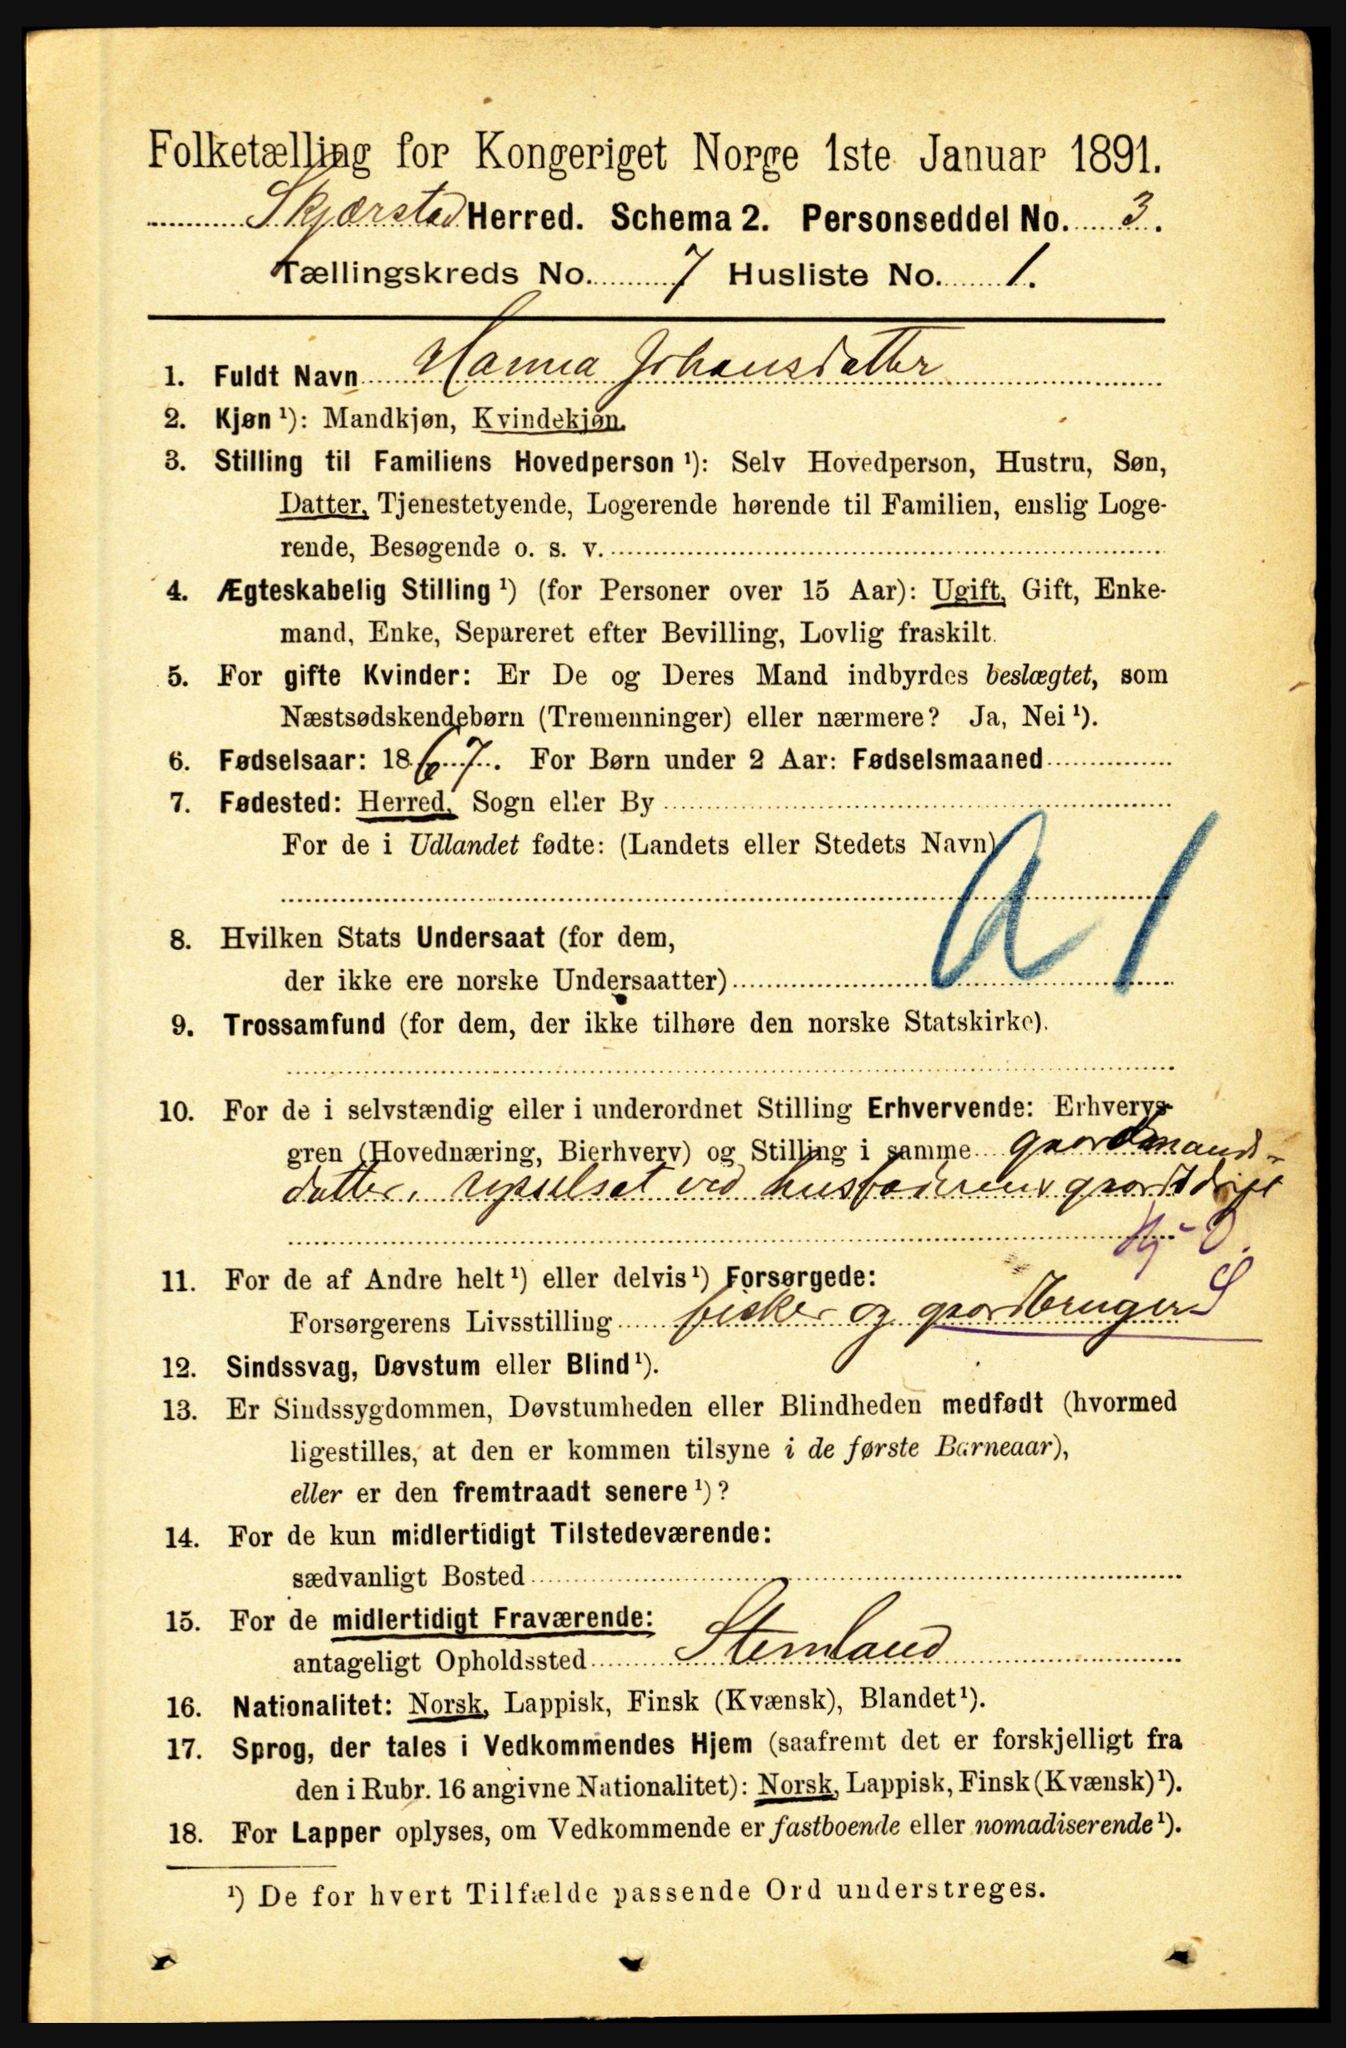 Folketælling for Kongeriget Norge 1ste Januar 1891.
Skjærstad Herred. Schema 2. Personseddel No. 3.
Tællingskreds No. 7 Husliste No. 1.
1. Fuldt Navn Hanna Johansdatter
2. Kjøn ¹): Mandkjøn, Kvindekjøn.
3. Stilling til Familiens Hovedperson ¹): Selv Hovedperson, Hustru, Søn,
Datter, Tjenestetyende, Logerende hørende til Familien, enslig Loge-
rende, Besøgende o. s. v.
4. Ægteskabelig Stilling ¹) (for Personer over 15 Aar): Ugift, Gift, Enke-
mand, Enke, Separeret efter Bevilling, Lovlig fraskilt.
5. For gifte Kvinder: Er De og Deres Mand indbyrdes beslægtet, som
Næstsødskendebørn (Tremenninger) eller nærmere? Ja, Nei ¹).
6. Fødselsaar: 1867. For Børn under 2 Aar: Fødselsmaaned
7. Fødested: Herred, Sogn eller By
For de i Udlandet fødte: (Landets eller Stedets Navn)
a 1
8. Hvilken Stats Undersaat (for dem,
der ikke ere norske Undersaatter)
9. Trossamfund (for dem, der ikke tilhøre den norske Statskirke).
10. For de i selvstændig eller i underordnet Stilling Erhvervende: Erhvervs-
gren (Hovednæring, Bierhverv) og Stilling i samme gaardmands-
datter, sysselsat ved husfaderens gaardsdrift
11. For de af Andre helt ¹) eller delvis ¹) Forsørgede:
Forsørgerens Livsstilling fisker og gaardbruger S
12. Sindssvag, Døvstum eller Blind ¹).
13. Er Sindssygdommen, Døvstumheden eller Blindheden medfødt (hvormed
ligestilles, at den er kommen tilsyne i de første Barneaar),
eller er den fremtraadt senere ¹)?
14. For de kun midlertidigt Tilstedeværende:
sædvanligt Bosted
15. For de midlertidigt Fraværende:
antageligt Opholdssted Stemland
16. Nationalitet: Norsk, Lappisk, Finsk (Kvænsk), Blandet ¹).
17. Sprog, der tales i Vedkommendes Hjem (saafremt det er forskjelligt fra
den i Rubr. 16 angivne Nationalitet): Norsk, Lappisk, Finsk (Kvænsk) ¹).
18. For Lapper oplyses, om Vedkommende er fastboende eller nomadiserende ¹).
¹) De for hvert Tilfælde passende Ord understreges.